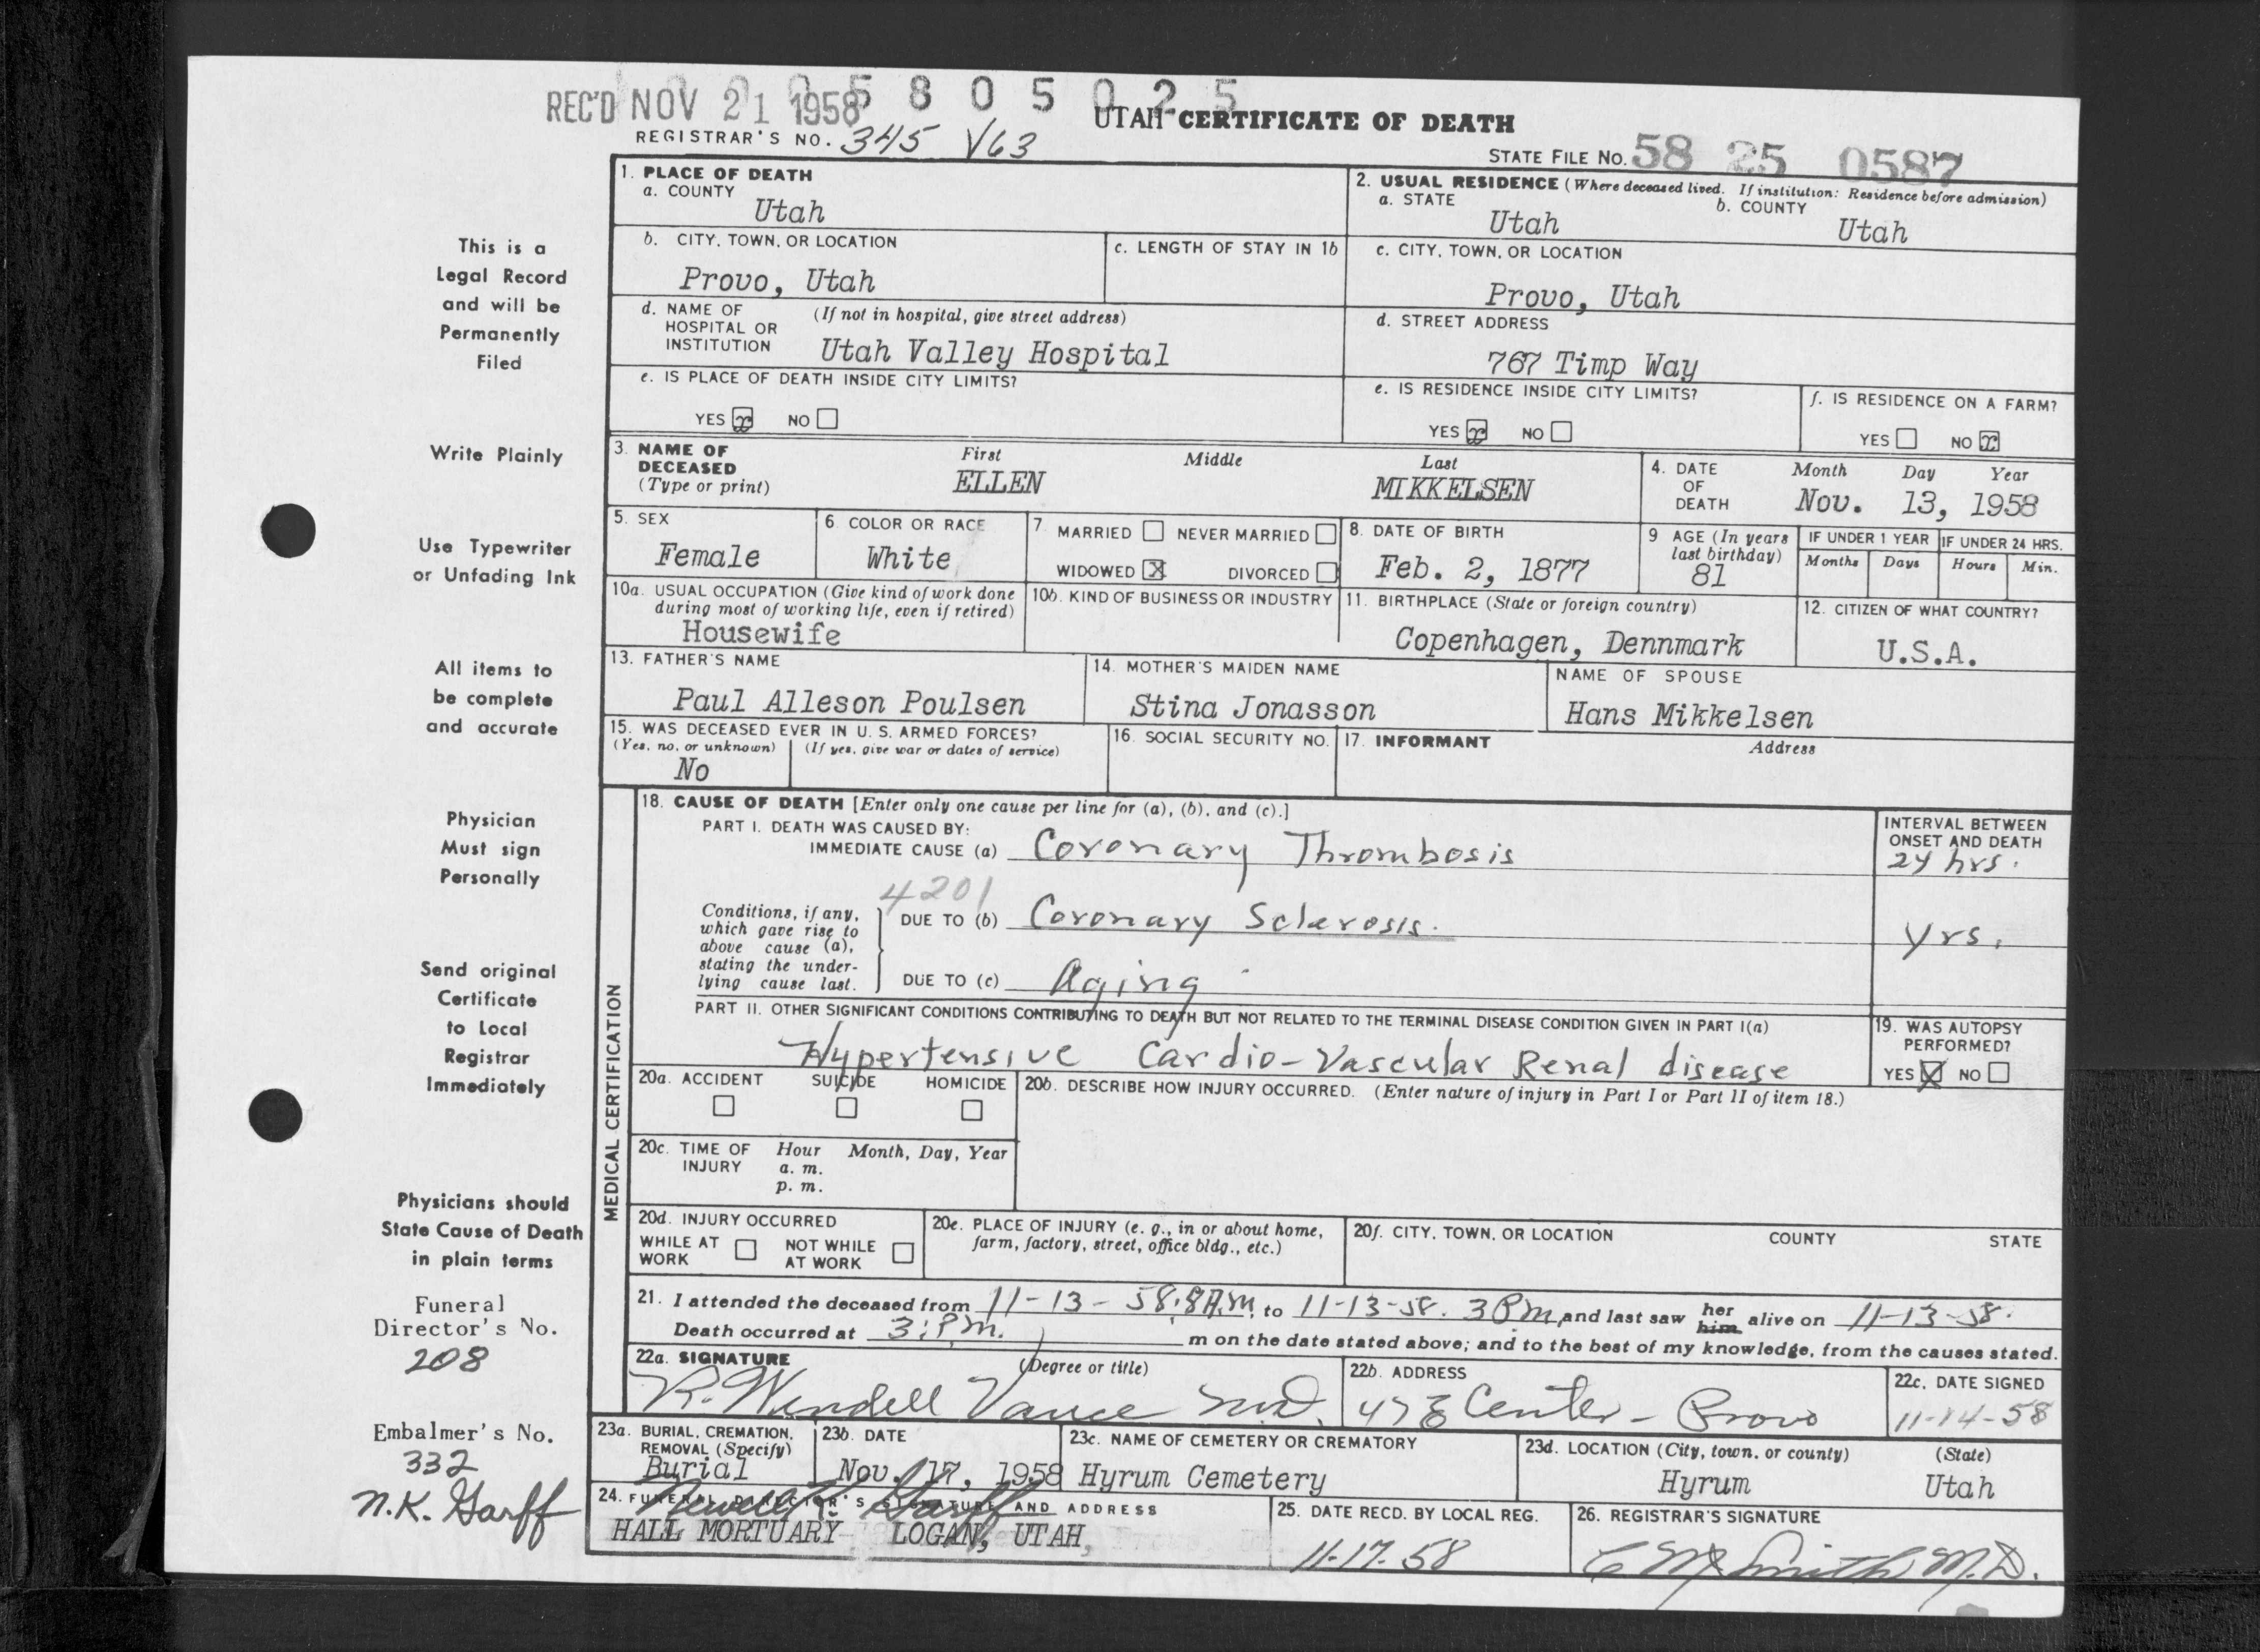 REC'D NOV 21 1958 5 8 0 5 0 2 5
UTAH CERTIFICATE OF DEATH
REGISTRAR'S NO. 345 V63
STATE FILE NO. 58 25 0587
This is a
Legal Record
and will be
Permanently
Filed
Write Plainly
Use Typewriter
or Unfading Ink
All items to
be complete
and accurate
Physician
Must sign
Personally
Send original
Certificate
to Local
Registrar
Immediately
Physicians should
State Cause of Death
in plain terms
Funeral
Director's No.
208
Embalmer's No.
332
N.K. Garff
1. PLACE OF DEATH
a. COUNTY
Utah
2. USUAL RESIDENCE (Where deceased lived. If institution: Residence before admission)
a. STATE b. COUNTY
Utah Utah
b. CITY, TOWN, OR LOCATION
Provo, Utah
c. LENGTH OF STAY IN 1b
c. CITY, TOWN, OR LOCATION
Provo, Utah
d. NAME OF (If not in hospital, give street address)
HOSPITAL OR
INSTITUTION Utah Valley Hospital
d. STREET ADDRESS
767 Timp Way
e. IS PLACE OF DEATH INSIDE CITY LIMITS?
YES x NO
e. IS RESIDENCE INSIDE CITY LIMITS?
YES x NO
f. IS RESIDENCE ON A FARM?
YES NO x
3. NAME OF First Middle Last
DECEASED
(Type or print) ELLEN MIKKELSEN
4. DATE Month Day Year
OF
DEATH Nov. 13, 1958
5. SEX
Female
6. COLOR OR RACE
White
7. MARRIED NEVER MARRIED
WIDOWED X DIVORCED
8. DATE OF BIRTH
Feb. 2, 1877
9 AGE (In years
last birthday)
81
IF UNDER 1 YEAR IF UNDER 24 HRS.
Months Days Hours Min.
10a. USUAL OCCUPATION (Give kind of work done
during most of working life, even if retired)
Housewife
10b. KIND OF BUSINESS OR INDUSTRY
11. BIRTHPLACE (State or foreign country)
Copenhagen, Dennmark
12. CITIZEN OF WHAT COUNTRY?
U.S.A.
13. FATHER'S NAME
Paul Alleson Poulsen
14. MOTHER'S MAIDEN NAME
Stina Jonasson
NAME OF SPOUSE
Hans Mikkelsen
15. WAS DECEASED EVER IN U. S. ARMED FORCES?
(Yes, no, or unknown) (If yes, give war or dates of service)
No
16. SOCIAL SECURITY NO.
17. INFORMANT Address
MEDICAL CERTIFICATION
18. CAUSE OF DEATH [Enter only one cause per line for (a), (b), and (c).]
PART I. DEATH WAS CAUSED BY:
IMMEDIATE CAUSE (a) Coronary Thrombosis
INTERVAL BETWEEN
ONSET AND DEATH
24 hrs.
4201
Conditions, if any,
which gave rise to
above cause (a),
stating the under-
lying cause last.
DUE TO (b) Coronary Sclerosis. yrs.
DUE TO (c) Aging
PART II. OTHER SIGNIFICANT CONDITIONS CONTRIBUTING TO DEATH BUT NOT RELATED TO THE TERMINAL DISEASE CONDITION GIVEN IN PART I(a)
Hypertensive Cardio-Vascular Renal disease
19. WAS AUTOPSY
PERFORMED?
YES X NO
20a. ACCIDENT SUICIDE HOMICIDE
20b. DESCRIBE HOW INJURY OCCURRED. (Enter nature of injury in Part I or Part II of item 18.)
20c. TIME OF Hour Month, Day, Year
INJURY a. m.
p. m.
20d. INJURY OCCURRED
WHILE AT NOT WHILE
WORK AT WORK
20e. PLACE OF INJURY (e. g., in or about home,
farm, factory, street, office bldg., etc.)
20f. CITY, TOWN, OR LOCATION COUNTY STATE
21. I attended the deceased from 11-13-58. 8 A.M. to 11-13-58. 3 P.m, and last saw her him alive on 11-13-58.
Death occurred at 3:P.m. m on the date stated above; and to the best of my knowledge, from the causes stated.
22a. SIGNATURE (Degree or title)
R. Wendell Vance M.D.
22b. ADDRESS
47 E Center - Provo
22c. DATE SIGNED
11-14-58
23a. BURIAL, CREMATION,
REMOVAL (Specify)
Burial
23b. DATE
Nov. 17, 1958
23c. NAME OF CEMETERY OR CREMATORY
Hyrum Cemetery
23d. LOCATION (City, town, or county) (State)
Hyrum Utah
24. FUNERAL DIRECTOR'S SIGNATURE AND ADDRESS
Newell K. Garff
HALL MORTUARY LOGAN, UTAH
25. DATE RECD. BY LOCAL REG.
11-17-58
26. REGISTRAR'S SIGNATURE
C M Smith M.D.